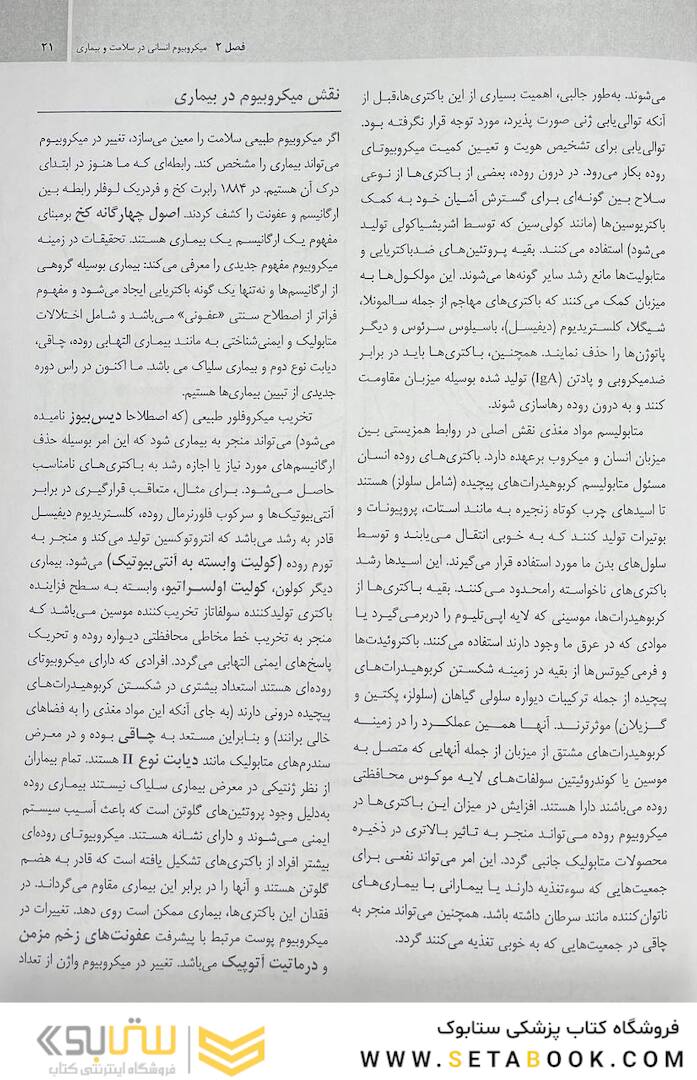 فصل ۲ میکروبیوم انسانی در سلامت و بیماری ۲۱
می‌شوند. به‌طور جالبی، اهمیت بسیاری از این باکتری‌ها،قبل از
آنکه توالی‌یابی ژنی صورت پذیرد، مورد توجه قرار نگرفته بود.
توالی‌یابی برای تشخیص هویت و تعیین کمیت میکروبیوتای
روده بکار می‌رود. در درون روده، بعضی از باکتری‌ها از نوعی
سلاح بین گونه‌ای برای گسترش آشیان خود به کمک
باکتریوسین‌ها (مانند کولی‌سین که توسط اشریشیاکولی تولید
می‌شود) استفاده می‌کنند. بقیه پروتئین‌های ضدباکتریایی و
متابولیت‌ها مانع رشد سایر گونه‌ها می‌شوند. این مولکول‌ها به
میزبان کمک می‌کنند که باکتری‌های مهاجم از جمله سالمونلا،
شیگلا، کلستریدیوم (دیفیسل)، باسیلوس سرئوس و دیگر
پاتوژن‌ها را حذف نمایند. همچنین، باکتری‌ها باید در برابر
ضدمیکروبی و پادتن (IgA) تولید شده بوسیله میزبان مقاومت
کنند و به درون روده رهاسازی شوند.
متابولیسم مواد مغذی نقش اصلی در روابط همزیستی بین
میزبان انسان و میکروب برعهده دارد. باکتری‌های روده انسان
مسئول متابولیسم کربوهیدرات‌های پیچیده (شامل سلولز) هستند
تا اسیدهای چرب کوتاه زنجیره به مانند استات، پروپیونات و
بوتیرات تولید کنند که به خوبی انتقال می‌یابند و توسط
سلول‌های بدن ما مورد استفاده قرار می‌گیرند. این اسیدها رشد
باکتری‌های ناخواسته رامحدود می‌کنند. بقیه باکتری‌ها از
کربوهیدرات‌ها، موسینی که لایه اپی‌تلیوم را دربرمی‌گیرد یا
موادی که در عرق ما وجود دارند استفاده می‌کنند. باکتروئیدت‌ها
و فرمی‌کیوتس‌ها از بقیه در زمینه شکستن کربوهیدرات‌های
پیچیده از جمله ترکیبات دیواره سلولی گیاهان (سلولز، پکتین و
گزیلان) موثرترند. آنها همین عملکرد را در زمینه
کربوهیدرات‌های مشتق از میزبان از جمله آنهایی که متصل به
موسین یا کوندروئیتین سولفات‌های لایه موکوس محافظتی
روده می‌باشند دارا هستند. افزایش در میزان این باکتری‌ها در
میکروبیوم روده می‌تواند منجر به تاثیر بالاتری در ذخیره
محصولات متابولیک جانبی گردد. این امر می‌تواند نفعی برای
جمعیت‌هایی که سوءتغذیه دارند یا بیمارانی با بیماری‌های
ناتوان‌کننده مانند سرطان داشته باشد. همچنین می‌تواند منجر به
چاقی در جمعیت‌هایی که به خوبی تغذیه می‌کنند گردد.
نقش میکروبیوم در بیماری
اگر میکروبیوم طبیعی سلامت را معین می‌سازد، تغییر در میکروبیوم
می‌تواند بیماری را مشخص کند. رابطه‌ای که ما هنوز در ابتدای
درک آن هستیم. در ۱۸۸۴ رابرت کخ و فردریک لوفلر رابطه بین
ارگانیسم و عفونت را کشف کردند. اصول چهارگانه کخ برمبنای
مفهوم یک ارگانیسم یک بیماری هستند. تحقیقات در زمینه
میکروبیوم مفهوم جدیدی را معرفی می‌کند: بیماری بوسیله گروهی
از ارگانیسم‌ها و نه‌تنها یک گونه باکتریایی ایجاد می‌شود و مفهوم
فراتر از اصطلاح سنتی «عفونی» می‌باشد و شامل اختلالات
متابولیک و ایمنی‌شناختی به مانند بیماری التهابی روده، چاقی،
دیابت نوع دوم و بیماری سلیاک می باشد. ما اکنون در راس دوره
جدیدی از تبیین بیماری‌ها هستیم.
تخریب میکروفلور طبیعی (که اصطلاحا دیس‌بیوز نامیده
می‌شود) می‌تواند منجر به بیماری شود که این امر بوسیله حذف
ارگانیسم‌های مورد نیاز یا اجازه رشد به باکتری‌های نامناسب
حاصل می‌شود. برای مثال، متعاقب قرارگیری در برابر
آنتی‌بیوتیک‌ها و سرکوب فلورنرمال روده، کلستریدیوم دیفیسل
قادر به رشد می‌باشد که انتروتوکسین تولید می‌کند و منجر به
تورم روده (کولیت وابسته به آنتی‌بیوتیک) می‌شود. بیماری
دیگر کولون، کولیت اولسراتیو، وابسته به سطح فزاینده
باکتری تولیدکننده سولفاتاز تخریب‌کننده موسین می‌باشد که
منجر به تخریب خط مخاطی محافظتی دیواره روده و تحریک
پاسخ‌های ایمنی التهابی می‌گردد. افرادی که دارای میکروبیوتای
روده‌ای هستند استعداد بیشتری در شکستن کربوهیدرات‌های
پیچیده درونی دارند (به جای آنکه این مواد مغذی را به فضاهای
خالی برانند) و بنابراین مستعد به چاقی بوده و در معرض
سندرم‌های متابولیک مانند دیابت نوع II هستند. تمام بیماران
از نظر ژنتیکی در معرض بیماری سلیاک نیستند بیماری روده
به‌دلیل وجود پروتئین‌های گلوتن است که باعث آسیب سیستم
ایمنی می‌شوند و دارای نشانه هستند. میکروبیوتای روده‌ای
بیشتر افراد از باکتری‌های تشکیل یافته است که قادر به هضم
گلوتن هستند و آنها را در برابر این بیماری مقاوم می‌گرداند. در
فقدان این باکتری‌ها، بیماری ممکن است روی دهد. تغییرات در
میکروبیوم پوست مرتبط با پیشرفت عفونت‌های زخم مزمن
و درماتیت آتوپیک می‌باشد. تغییر در میکروبیوم واژن از تعداد
فروشگاه کتاب پزشکی ستابوک
WWW.SETABOOK.COM
ستابوک
فروشگاه اینترنتی کتاب